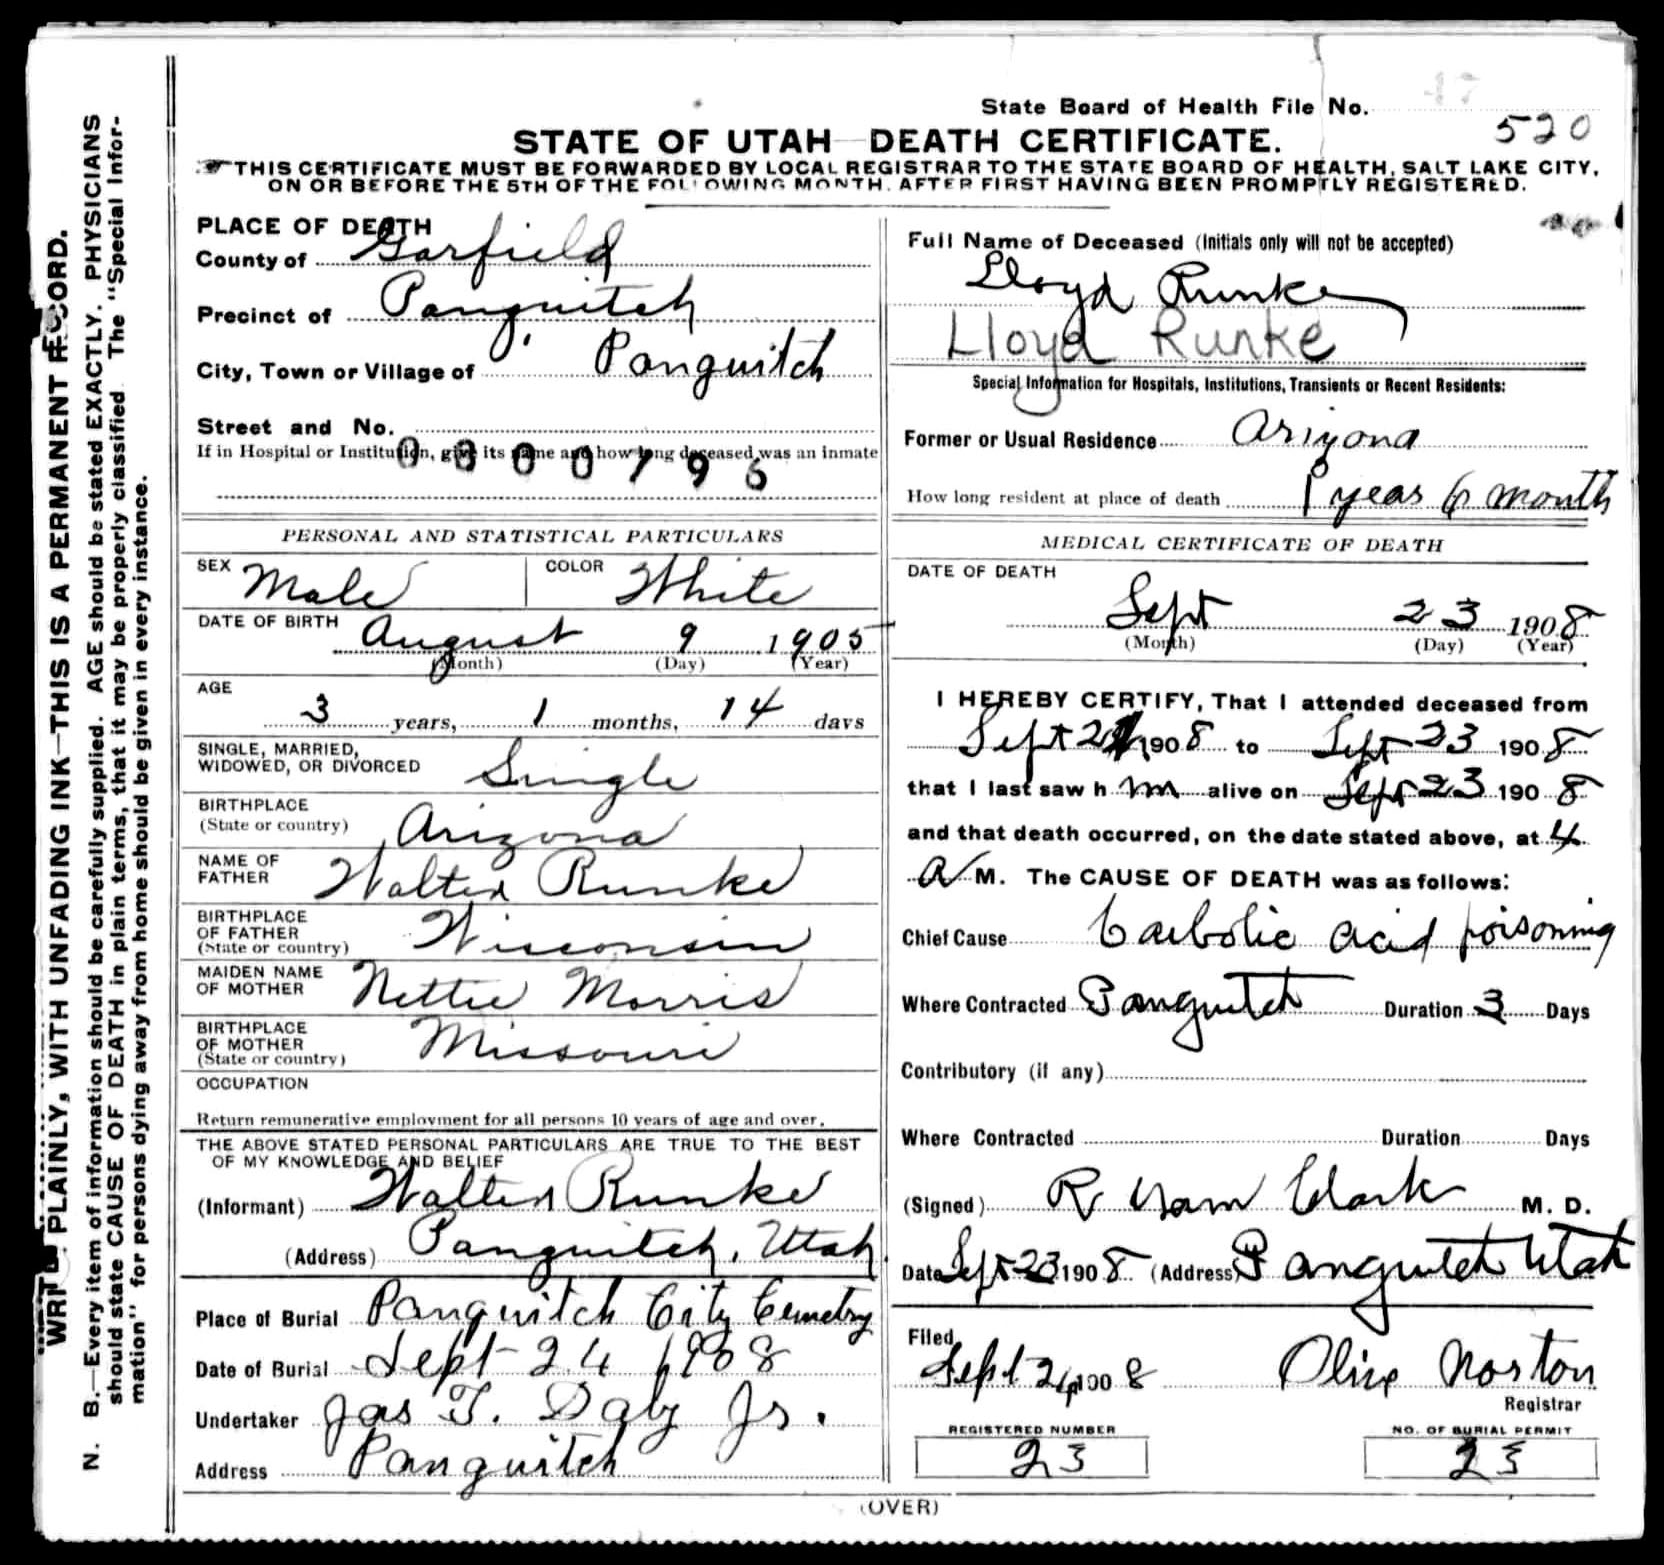 State Board of Health File No.
520
STATE OF UTAH—DEATH CERTIFICATE.
THIS CERTIFICATE MUST BE FORWARDED BY LOCAL REGISTRAR TO THE STATE BOARD OF HEALTH, SALT LAKE CITY,
ON OR BEFORE THE 5TH OF THE FOLLOWING MONTH, AFTER FIRST HAVING BEEN PROMPTLY REGISTERED.
WRITE PLAINLY, WITH UNFADING INK—THIS IS A PERMANENT RECORD.
N. B.—Every item of information should be carefully supplied. AGE should be stated EXACTLY. PHYSICIANS
should state CAUSE OF DEATH in plain terms, that it may be properly classified. The "Special Infor-
mation" for persons dying away from home should be given in every instance.
PLACE OF DEATH
County of Garfield
Precinct of Panguitch
City, Town or Village of Panguitch
Street and No.
If in Hospital or Institution, give its name and how long deceased was an inmate
0000796
PERSONAL AND STATISTICAL PARTICULARS
SEX Male COLOR White
DATE OF BIRTH August 9 1905
(Month) (Day) (Year)
AGE
3 years, 1 months, 14 days
SINGLE, MARRIED,
WIDOWED, OR DIVORCED Single
BIRTHPLACE
(State or country) Arizona
NAME OF
FATHER Walter Runke
BIRTHPLACE
OF FATHER
(State or country) Wisconsin
MAIDEN NAME
OF MOTHER Nettie Morris
BIRTHPLACE
OF MOTHER
(State or country) Missouri
OCCUPATION
Return remunerative employment for all persons 10 years of age and over.
THE ABOVE STATED PERSONAL PARTICULARS ARE TRUE TO THE BEST
OF MY KNOWLEDGE AND BELIEF
(Informant) Walter Runke
(Address) Panguitch, Utah
Place of Burial Panguitch City Cemetry
Date of Burial Sept 24 1908
Undertaker Jas T. Daly Jr.
Address Panguitch
Full Name of Deceased (Initials only will not be accepted)
Lloyd Runke
Lloyd Runke
Special Information for Hospitals, Institutions, Transients or Recent Residents:
Former or Usual Residence Arizona
How long resident at place of death 1 years 6 month
MEDICAL CERTIFICATE OF DEATH
DATE OF DEATH
Sept 23 1908
(Month) (Day) (Year)
I HEREBY CERTIFY, That I attended deceased from
Sept 21 1908 to Sept 23 1908
that I last saw h m alive on Sept 23 1908
and that death occurred, on the date stated above, at 4
A M. The CAUSE OF DEATH was as follows:
Chief Cause Carbolic acid poisoning
Where Contracted Panguitch Duration 3 Days
Contributory (if any)
Where Contracted Duration Days
(Signed) R Clark M. D.
Date Sept 23 1908 (Address) Panguitch Utah
Filed
Sept 24 1908 Olive Norton
Registrar
REGISTERED NUMBER
23
NO. OF BURIAL PERMIT
23
(OVER)